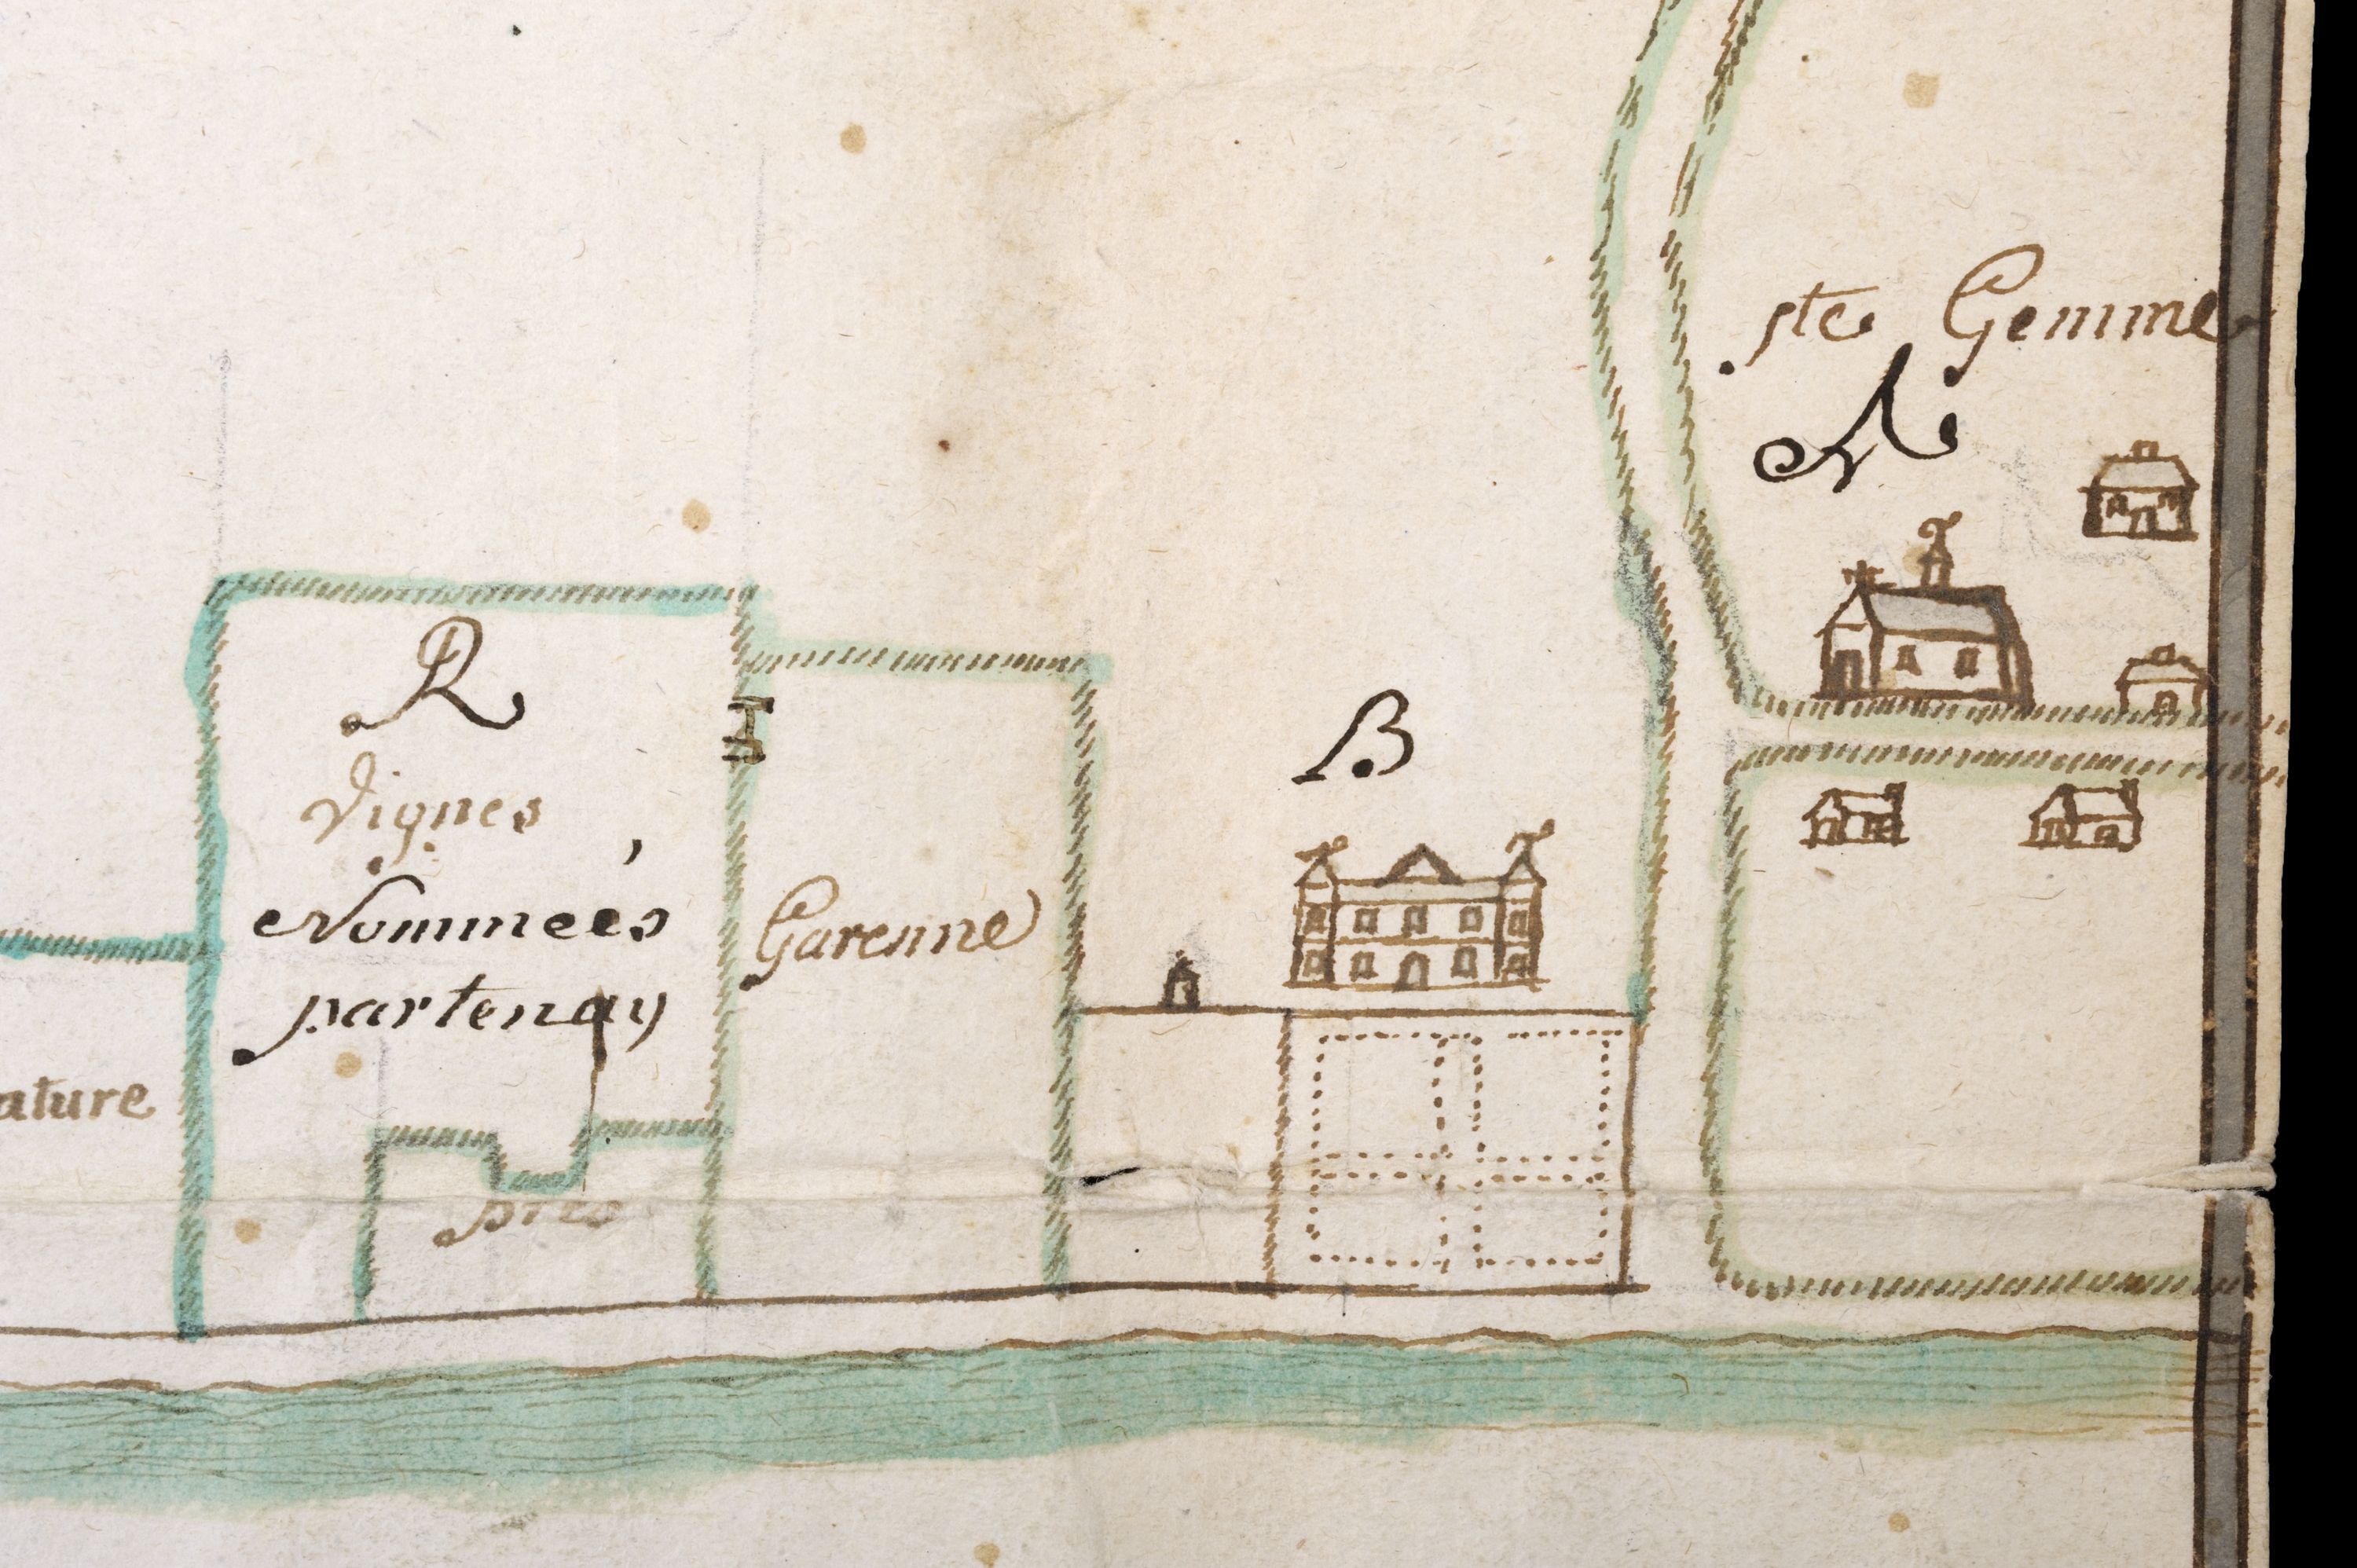 ste Gemme
A
R
Vignes
Nommeés
partenay
H
Garenne
B
ature
prés